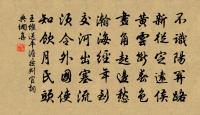 不識陽關路
新從定遠侯
黃雲斷春色
畫角起邊愁
瀚海經年到
交河出塞流
須令外國使
知飲月氏頭
王維送平澹然判官詞